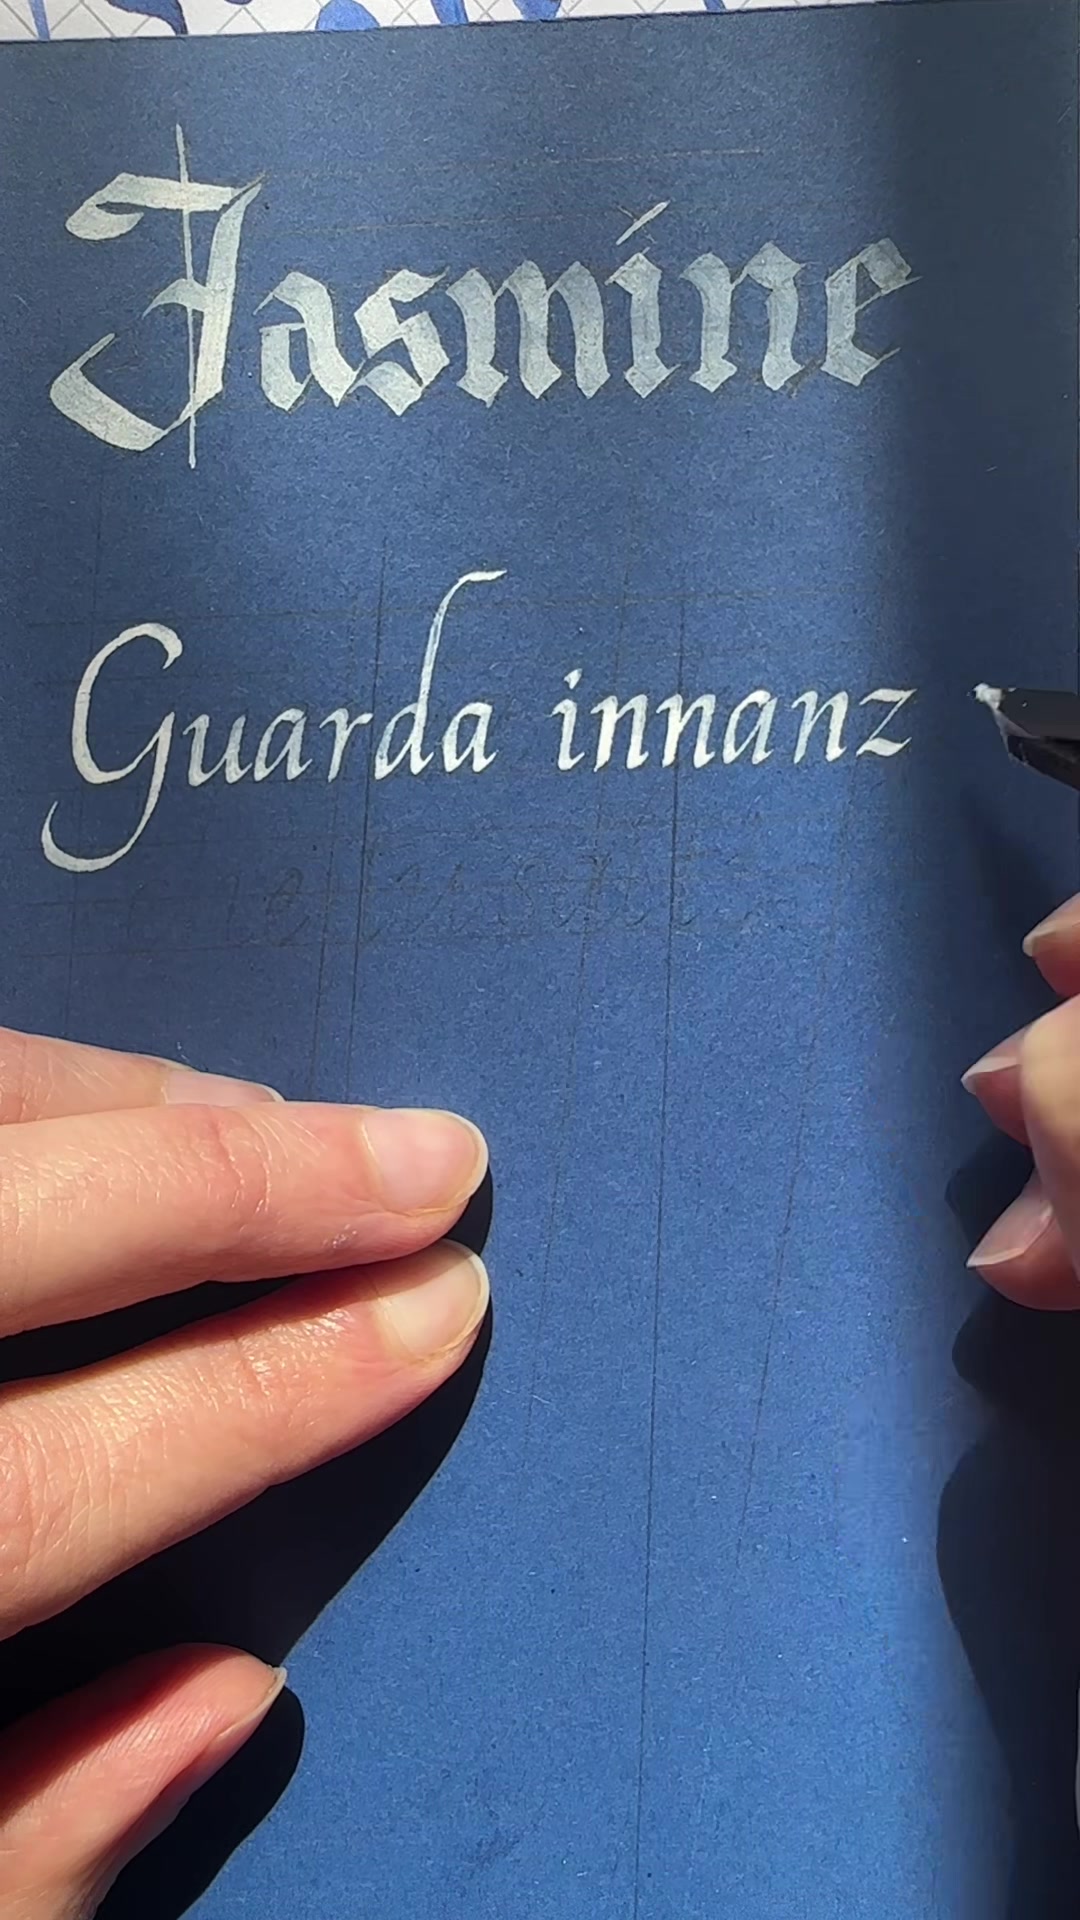 Jasmine
Guarda innanz